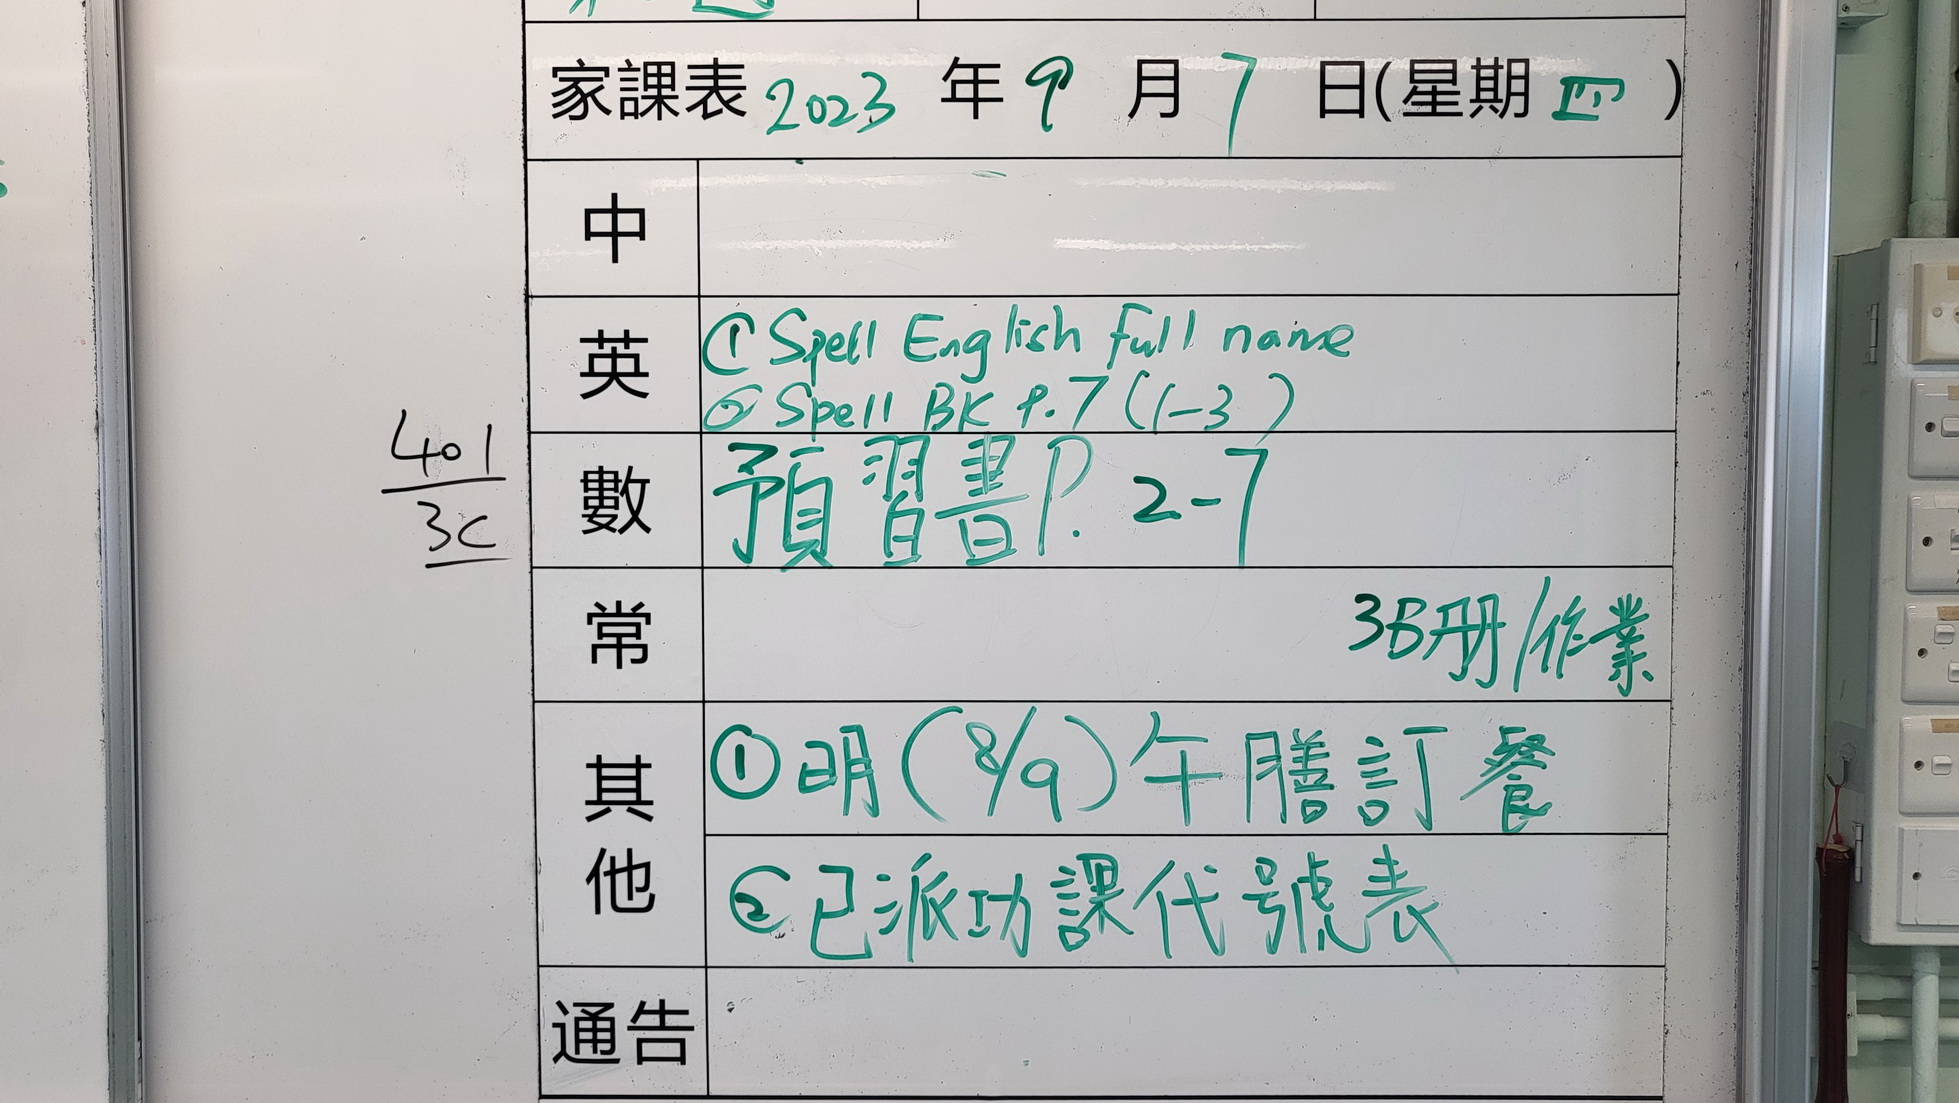 家課表 2023 年 9 月 7 日(星期 四 )
中
英
① Spell English Full name
② Spell BK P.7 (1-3)
401
3C
數
預習書 P. 2-7
常
3B冊/作業
其他
① 明(8/9)午膳訂餐
② 已派功課代號表
通告